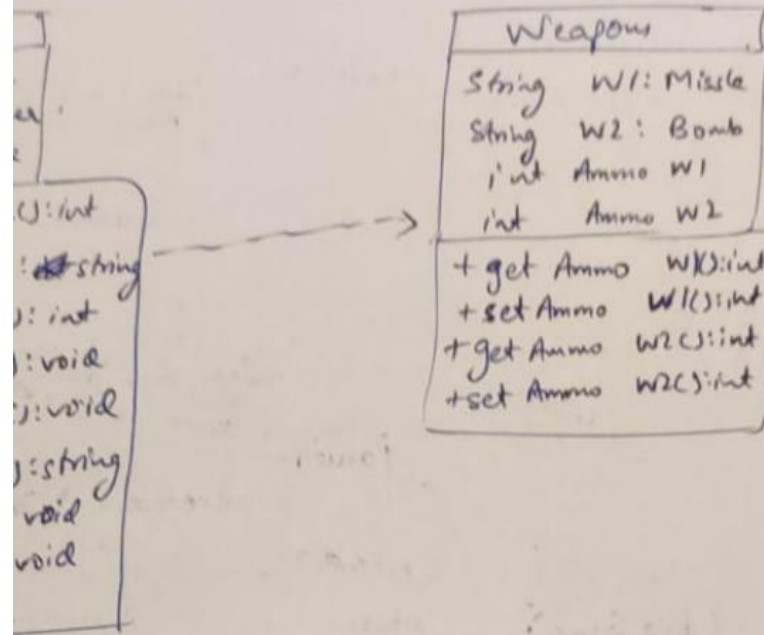 er
(): int
: string
): int
): void
(): void
): string
void
void
Weapons
String W1: Missle
String W2: Bomb
int Ammo W1
int Ammo W2
+ get Ammo W1(): int
+ set Ammo W1(): int
+ get Ammo W2(): int
+ set Ammo W2(): int